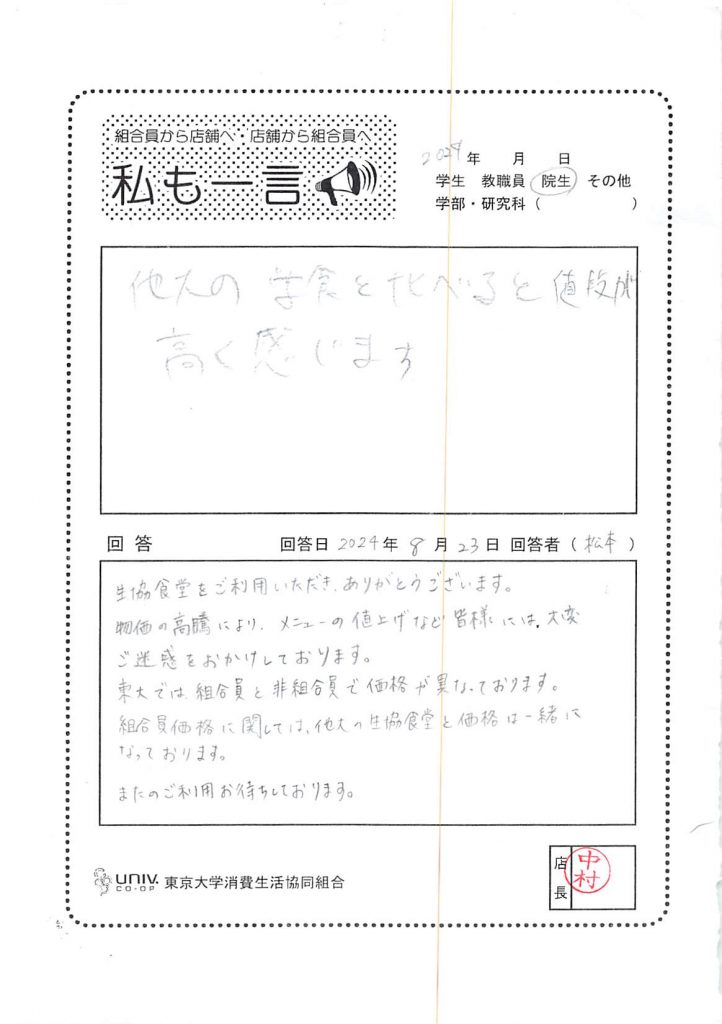 組合員から店舗へ・店舗から組合員へ
私も一言
2024年 月 日
学生 教職員 院生 その他
学部・研究科( )
他大の学食と比べると値段が
高く感じます
回答 回答日 2024年 8月 23日 回答者(松本)
生協食堂をご利用いただき、ありがとうございます。
物価の高騰により、メニューの値上げなど皆様には、大変
ご迷惑をおかけしております。
東大では、組合員と非組合員で価格が異なっております。
組合員価格に関しては、他大の生協食堂と価格は一緒に
なっております。
またのご利用お待ちしております。
UNIV.
CO-OP 東京大学消費生活協同組合
店長
中村